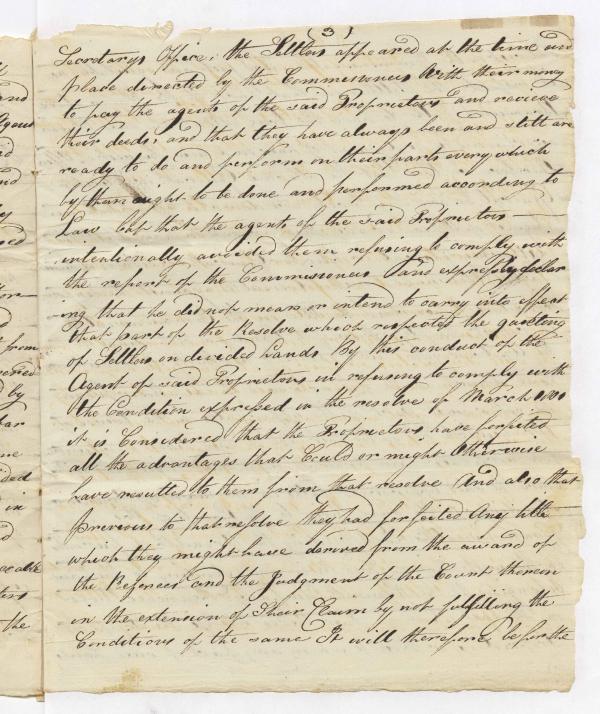 (3)
Secretarys Office, the Settlers appeared at the time and
place directed by the Commissioners With their money
to pay the agents of the said Proprietors and recieve
their deeds, and that they have always been and still are
ready to do and perform on their parts every which
by them ought to be done and performed according to
Law but that the agents of the said Proprietors —
intentionally avoided them refusing to comply with
the report of the Commissioners and expressly declar
-ing that he did not mean or intend to carry into effect
that part of the Resolve which respected the quieting
of Settlers on divided Lands By this conduct of the
Agent of said Proprietors in refusing to comply with
the Condition expressed in the resolve of March 1801
it is Considered that the Proprietors have forfeited
all the advantages that Could or might Otherwise
have resulted to them from that resolve And also that
previous to that resolve they had forfeited Any title
which they might have derived from the award of
the Referees and the Judgment of the Court thereon
in the extension of Their Claim by not fulfilling the
Conditions of the same It will therefore before the
and
Agent
from
by
in
the